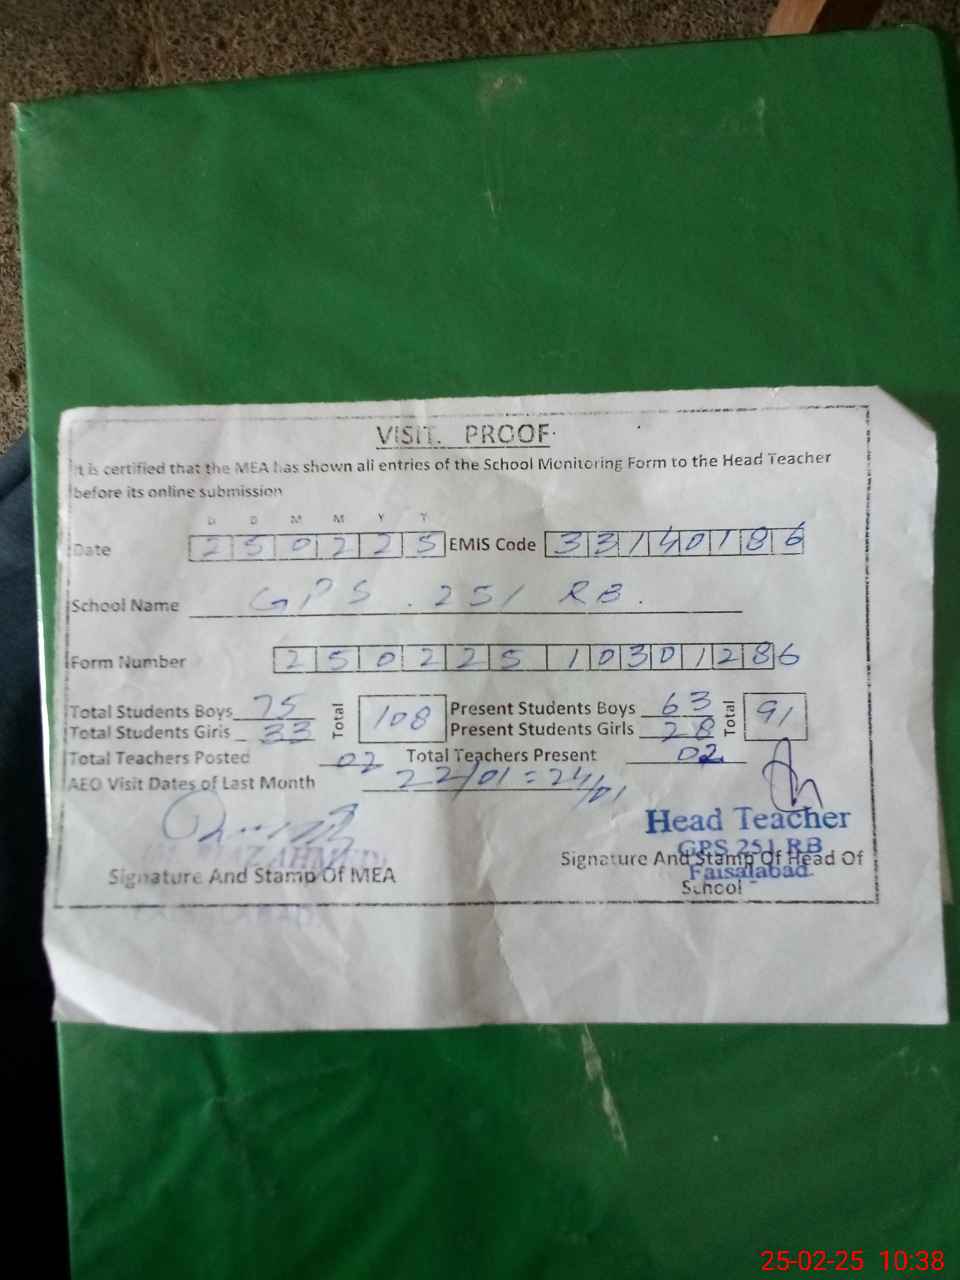 VISIT. PROOF.
It is certified that the MEA has shown all entries of the School Monitoring Form to the Head Teacher
before its online submission
D D M M Y Y
Date 250225 EMIS Code 33140186
School Name GPS. 251 RB.
Form Number 250225 10301286
Total Students Boys 75 Total 108 Present Students Boys 63 Total 91
Total Students Girls 33 Present Students Girls 28
Total Teachers Posted 02 Total Teachers Present 02
AEO Visit Dates of Last Month 22/01 = 24/01
Head Teacher
GPS 251 RB
Faisalabad
Signature And Stamp Of MEA
Signature And Stamp Of Head Of
School
25-02-25 10:38